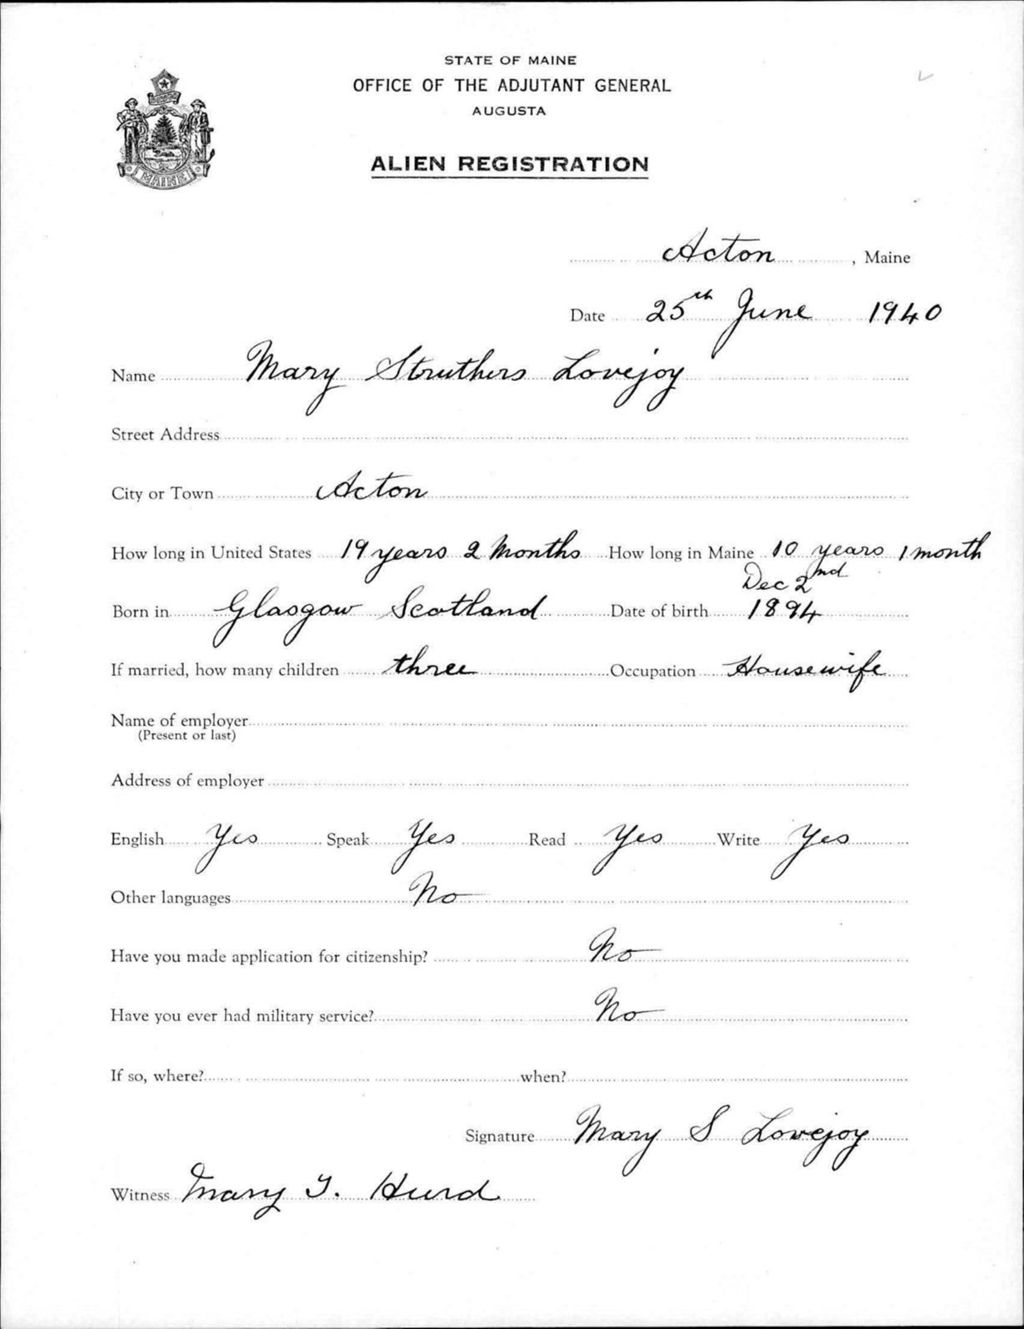 STATE OF MAINE
OFFICE OF THE ADJUTANT GENERAL
AUGUSTA
MAINE
ALIEN REGISTRATION
Acton, Maine
Date 25th June 1940
Name Mary Struthers Lovejoy
Street Address
City or Town Acton
How long in United States 19 years 2 Months How long in Maine 10 years 1 month
Born in Glasgow Scotland Date of birth Dec 2nd 1894
If married, how many children three Occupation Housewife
Name of employer
(Present or last)
Address of employer
English Yes Speak Yes Read Yes Write Yes
Other languages No
Have you made application for citizenship? No
Have you ever had military service? No
If so, where? when?
Signature Mary S Lovejoy
Witness Mary J. Hurd